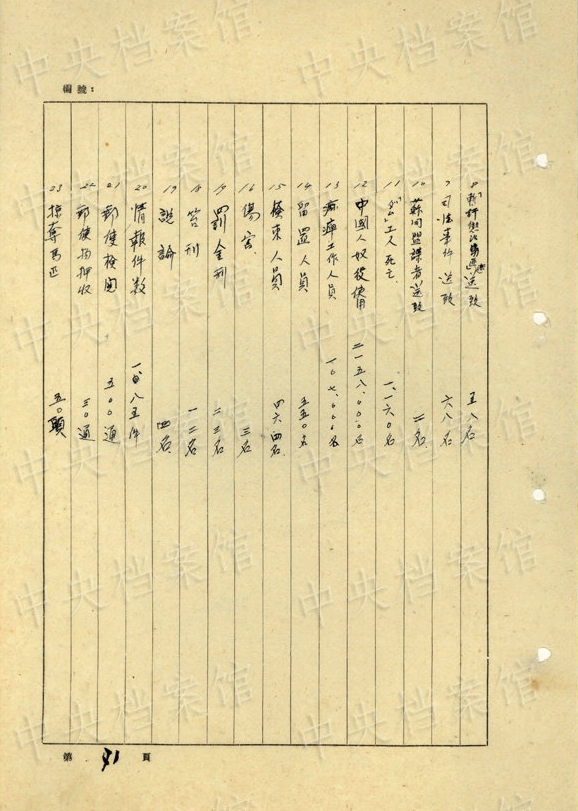 欄號：
送致 五八名
9 司法事件 送致 六八名
10 蘇同盟諜者送致 二名
11 工人死亡 一、一六〇名
12 中國人奴役使用 二一五八、〇〇〇名
13 工作人員 一〇七、〇〇〇名
14 留置人員 五五〇名
15 檢束人員 四六四名
16 傷害 三名
17 罰金刑 二三名
18 笞刑 一二名
19 説諭 四名
20 情報件数 一八五件
21 郵便検閲 五〇〇通
22 郵便物押收 三〇通
23 掠奪馬匹 五〇頭
第 91 頁
中央档案馆